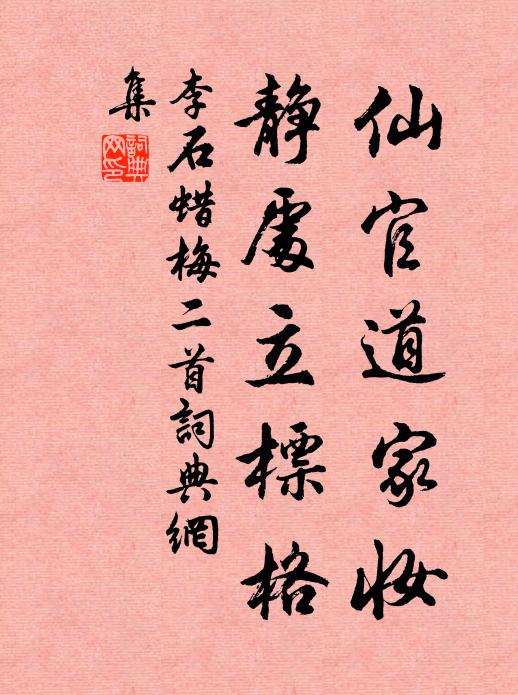 仙官道家妆
静處立標格
李石蜡梅二首詞典網
集
詞典网印